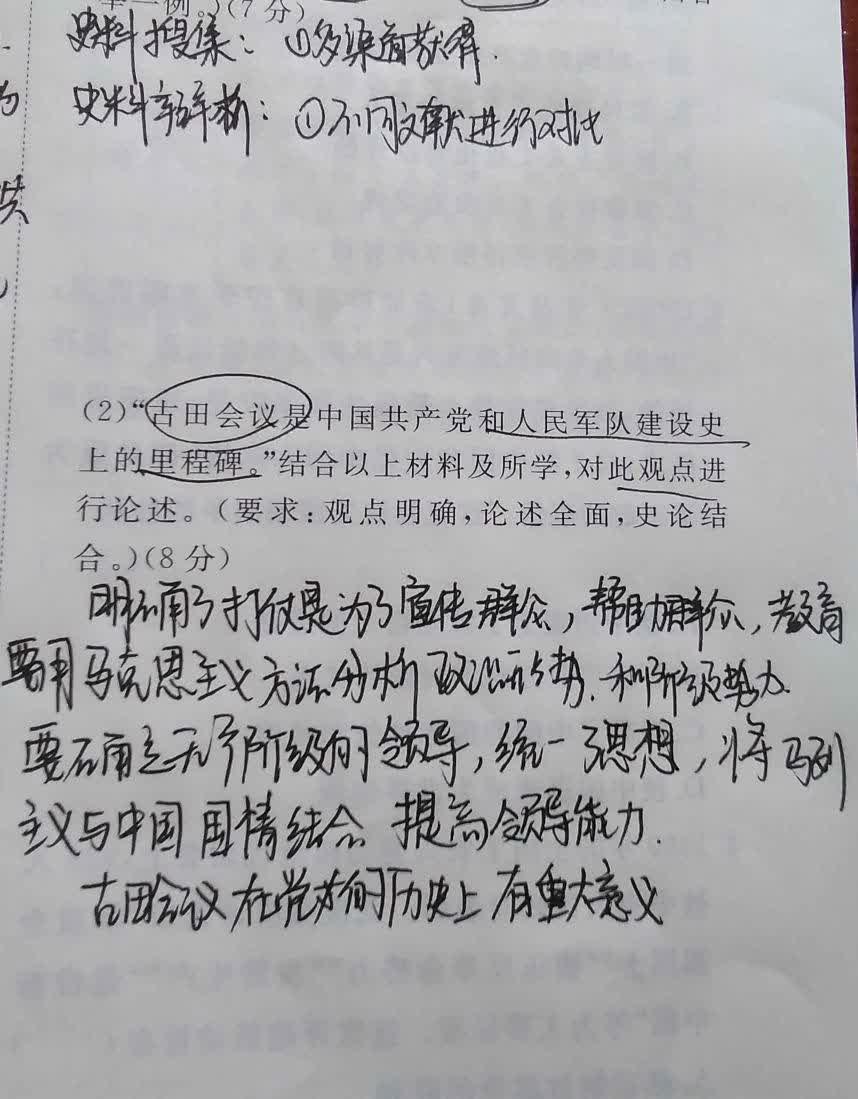 举一例。)(7分)
史料搜集：①多渠道获得.
史料辨析：①不同文献进行对比
(2)“古田会议是中国共产党和人民军队建设史
上的里程碑。”结合以上材料及所学,对此观点进
行论述。(要求:观点明确,论述全面,史论结
合。)(8分)
明确了打仗是为了宣传群众，帮助群众，教育
要用马克思主义方法分析政治形势.和阶级势力.
要确立无产阶级的领导，统一了思想，将马列
主义与中国国情结合 提高领导能力.
古田会议在党的历史上有重大意义